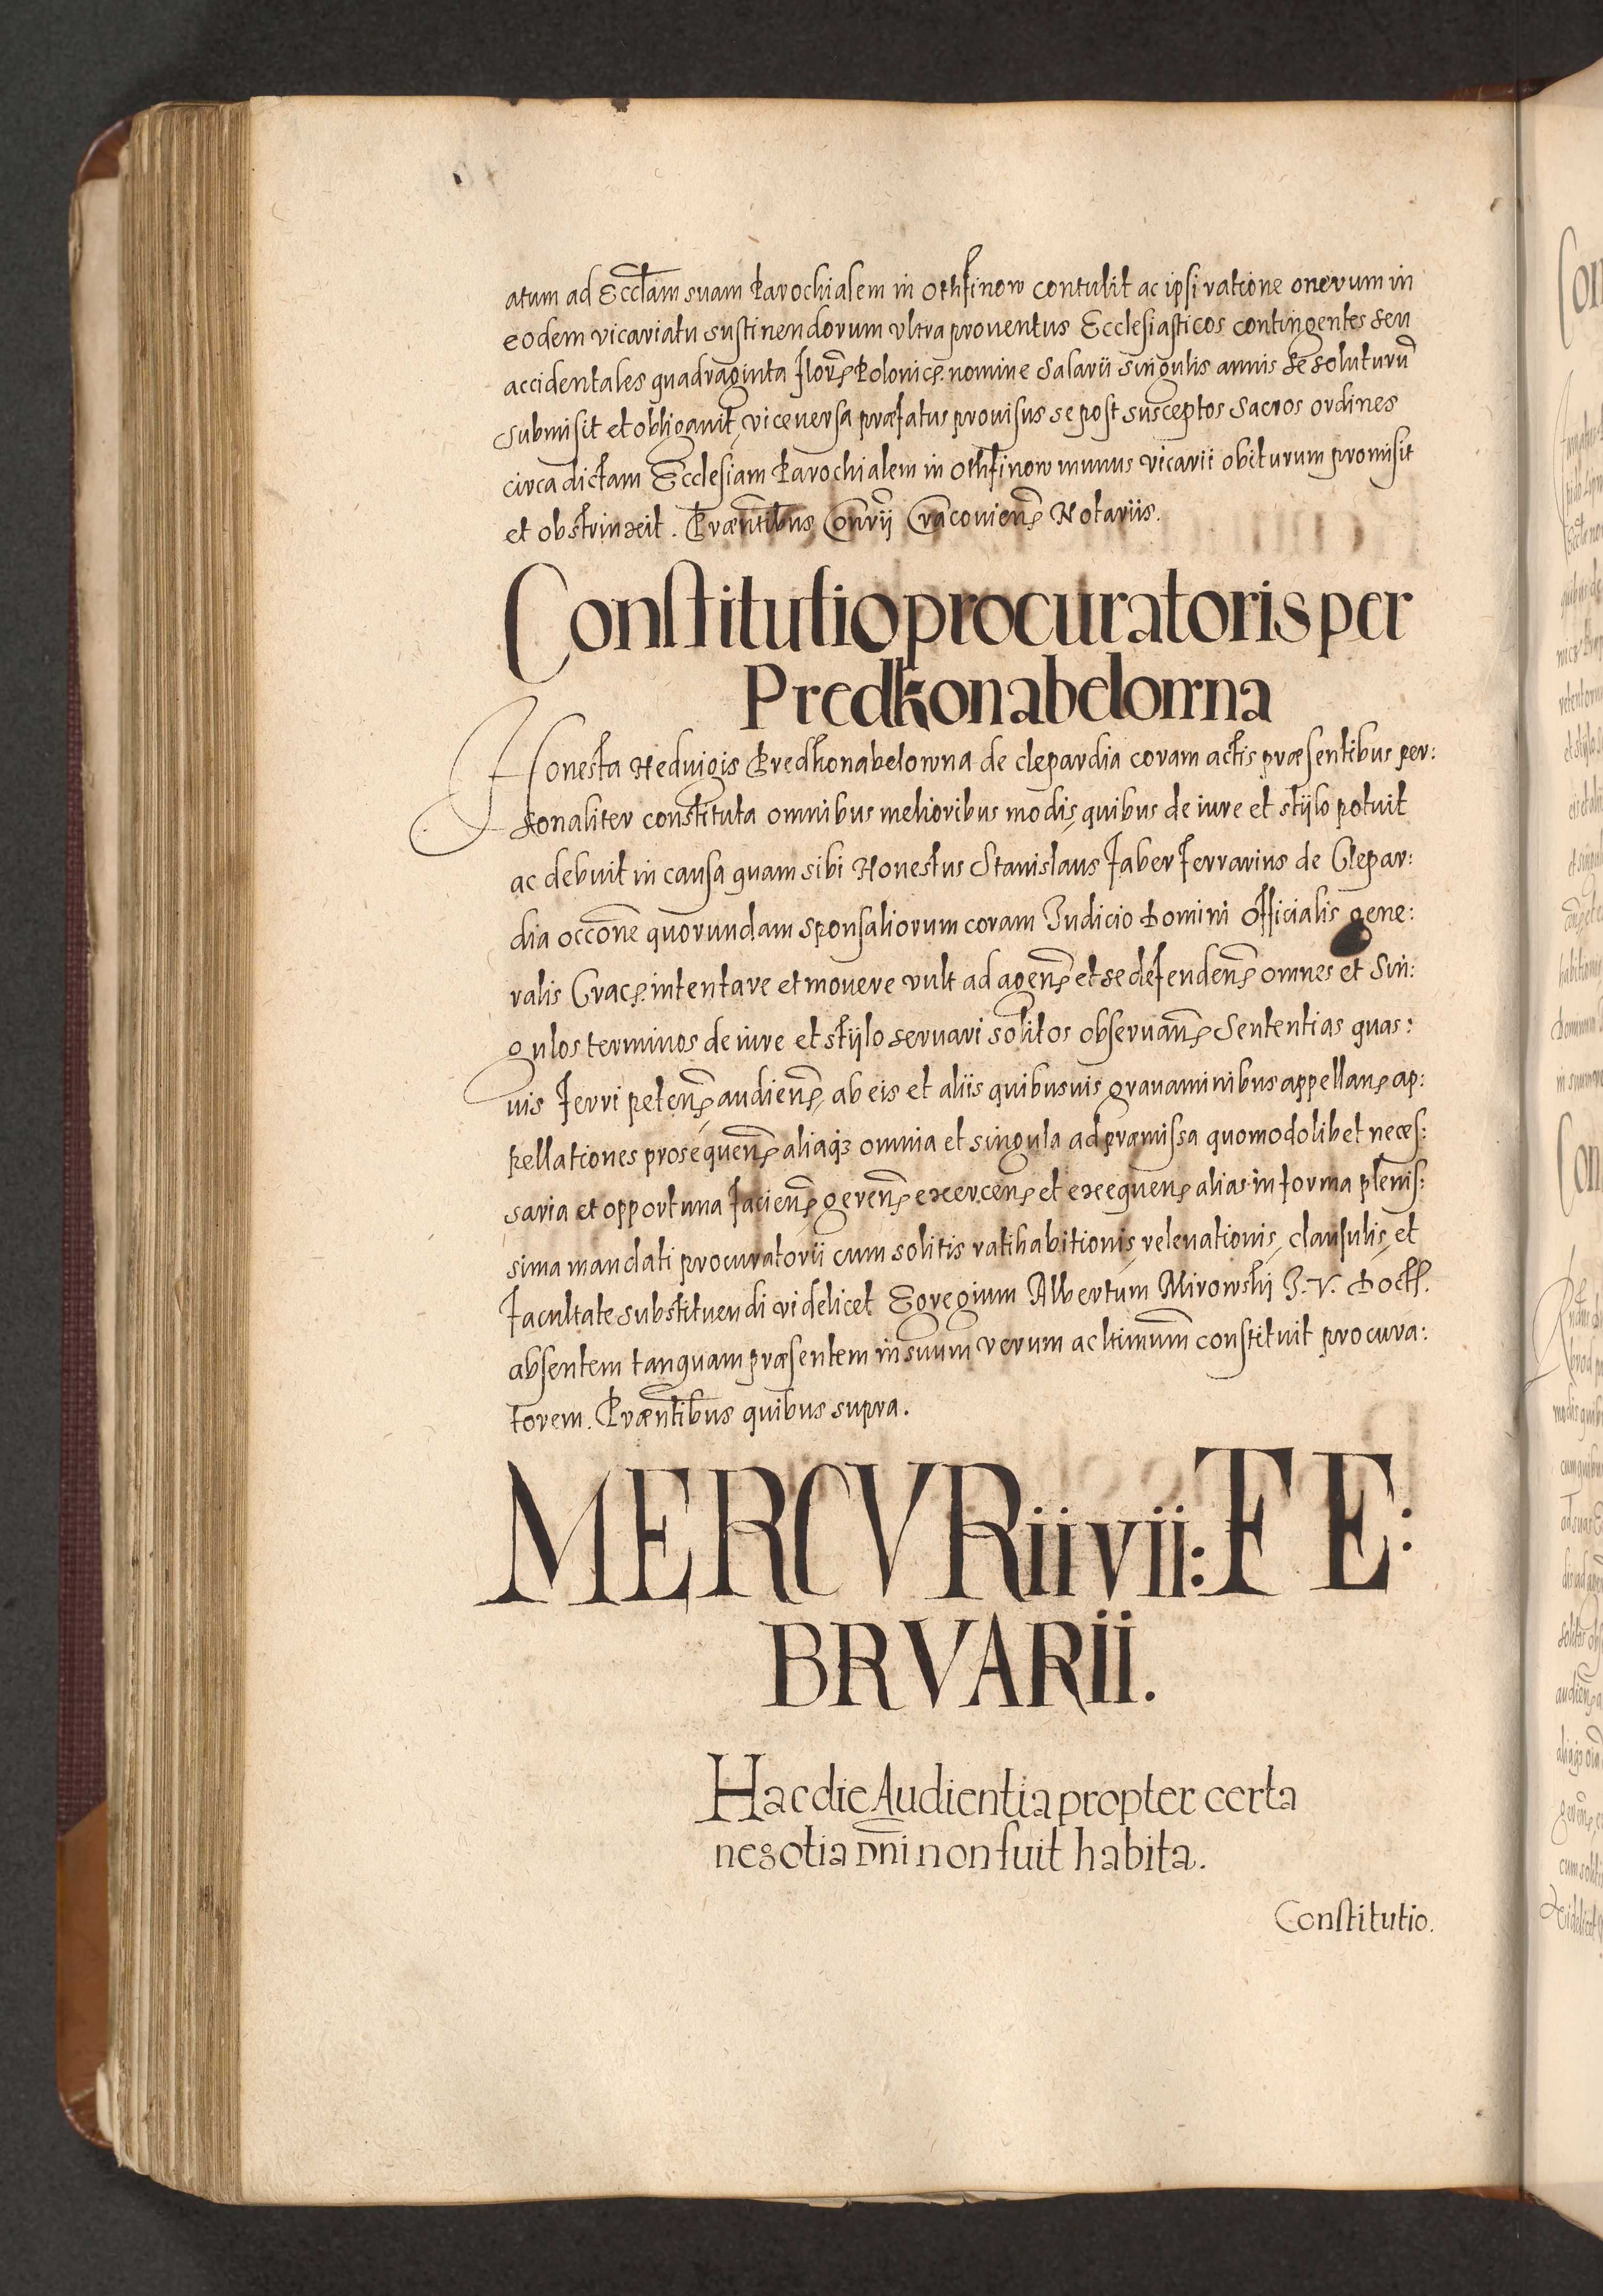 atum ad Eccl̃am suam Parochialem in Othfinow contulit ac ipsi ratione onerum in
eodem vicariatu sustinendorum vltra prouentus Ecclesiasticos contingentes seu
accidentales quadraginta floreñ Polonicę nomine salarii singulis annis se soluturũ
submisit et obligauit, viceuersa præfatus prouisus se post susceptos sacros ordines
circa dictam Ecclesiam Parochialem in Othfinow munus vicarii obiturum promisit
et obstrinxit. Præñtibus Coñrij Cracouieñ Notariis.
Constitutio procuratoris per
Predkonabelowna
Honesta Heduigis Predkonabelowna de clepardia coram actis præsentibus per:
sonaliter constituta omnibus melioribus modis, quibus de iure et stylo potuit
ac debuit in causa quam sibi Honestus Stanislaus faber ferrarius de Clepar:
dia occõne quorundam sponsaliorum coram Iudicio Domini Officialis gene:
ralis Crac̨ intentare et mouere vult ad ageñ et se defendeñ omnes et sin:
gulos terminos de iure et stijlo seruari solitos obseruañ Sententias quas:
uis ferri peteñ audieñ, ab eis et aliis quibusuis grauaminibus appellan̨ ap:
pellationes prosequeñ aliaq₃ omnia et singula ad præmissa quomodolibet neces:
saria et opportuna facieñ gereñ exercen̨ et exequen̨ alias in forma plenis:
sima mandati procuratorii cum solitis ratihabitionis, releuationis, clausulis, et
facultate substituendi videlicet Egregium Albertum Mirowskij I. V. Doct̃.
absentem tanquam præsentem in suum verum ac ltimum̃ constituit procura:
torem. Præñtibus quibus supra.
MERCVRii vii: FE:
BRVARii.
Hac die Audientia propter certa
negotia Dñi non fuit habita.
Constitutio.